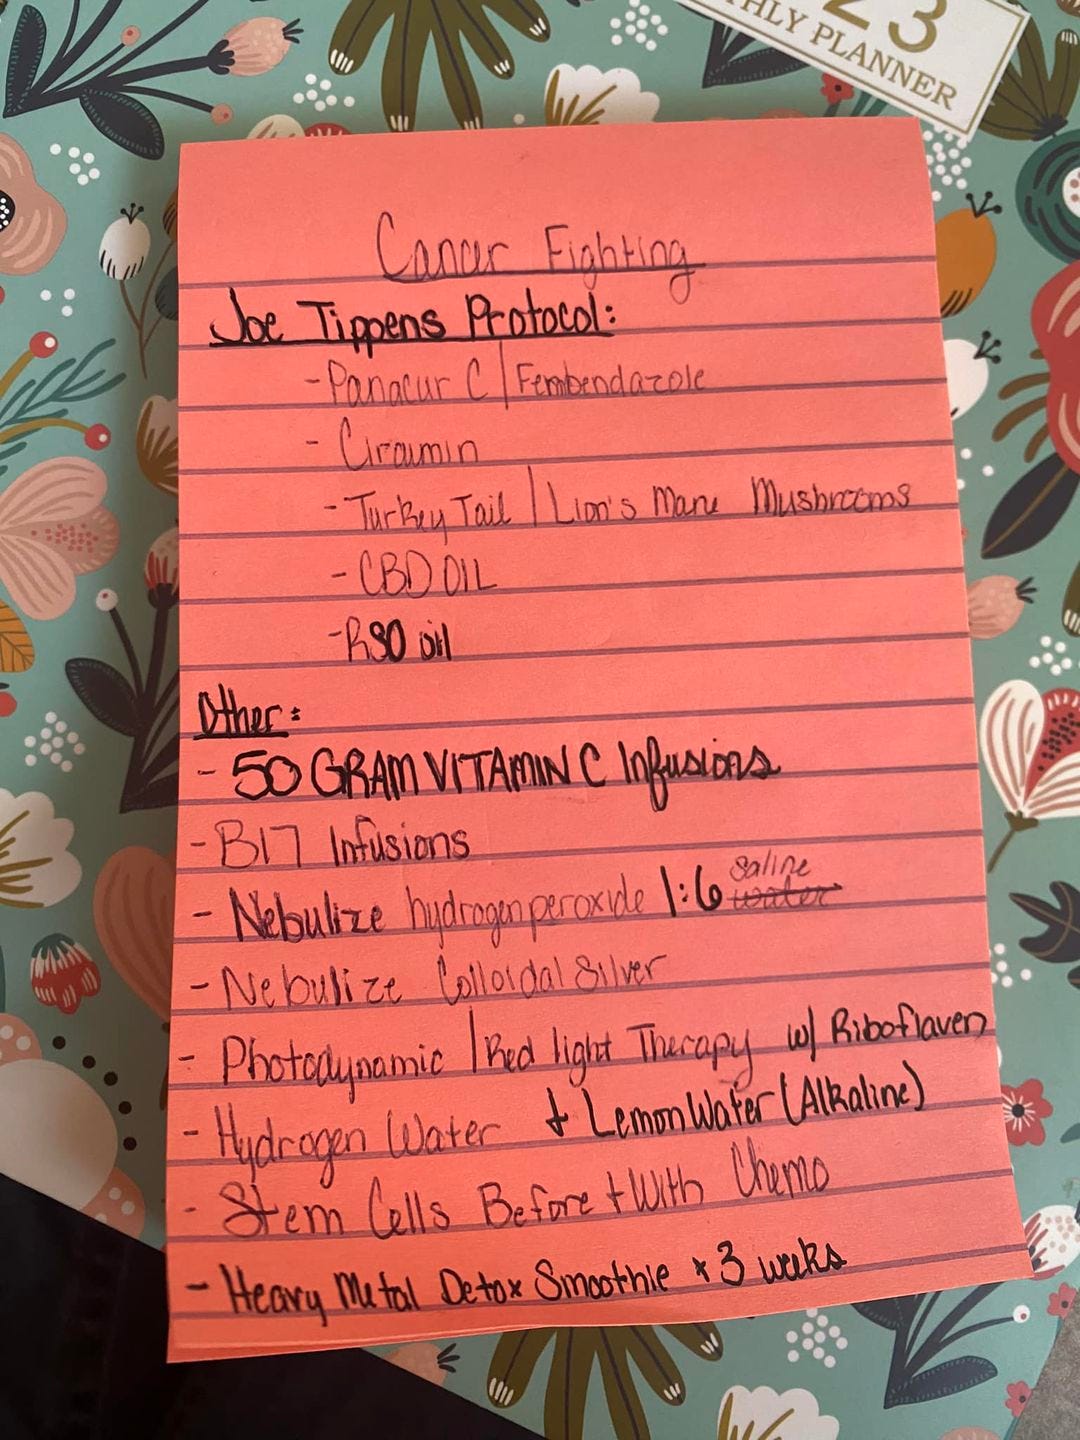 23
THLY PLANNER
Cancer Fighting
Joe Tippens Protocol:
- Panacur C | Fembendazole
- Circumin
- Turkey Tail | Lion's Mane Mushrooms
- CBD OIL
- RSO oil
Other:
- 50 GRAM VITAMIN C Infusions
- B17 Infusions
- Nebulize hydrogen peroxide 1:6 saline water
- Nebulize Colloidal Silver
- Photodynamic | Red light Therapy w/ Riboflaven
- Hydrogen Water + Lemon Water (Alkaline)
- Stem Cells Before + With Chemo
- Heavy Metal Detox Smoothie x 3 weeks